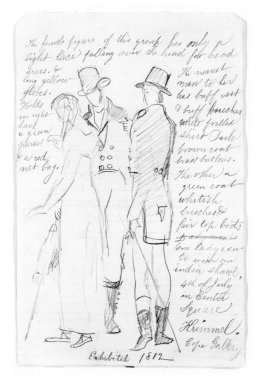 The female figure of this group has only a
light lace falling over the head for head
dress. &
long yellow
gloves.
Holds
in right
hand
a green
& a red
net bag.
The nearest
man to her
has buff vest
& buff breeches
white frilled
shirt Dark
brown coat
brass buttons.
The other a
green coat
whitish
breeches &
fair top boots
is
one lady seen
to wear an
india shawl,
4th of July
in Centre
Square
Krimmel.
Expo Gallery
Exhibited 1812